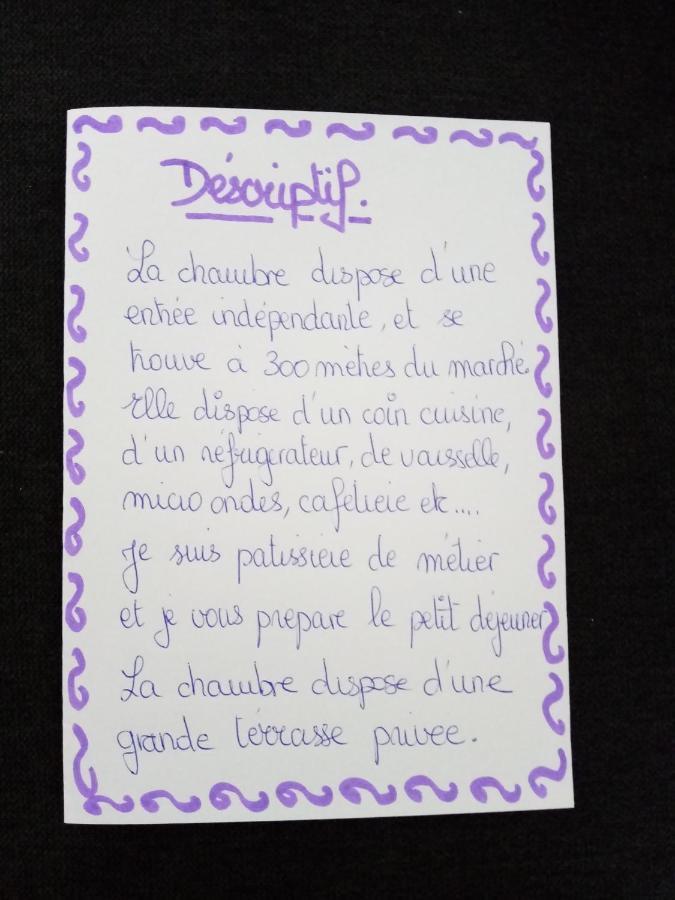 Déscriptif.
La chambre dispose d'une
entrée indépendante, et se
trouve à 300 mètres du marché.
Elle dispose d'un coin cuisine,
d'un réfrigerateur, de vaisselle,
micro ondes, cafetieie etc....
Je suis patissieie de métier
et je vous prepare le petit déjeuner
La chambre dispose d'une
grande térrasse privee.